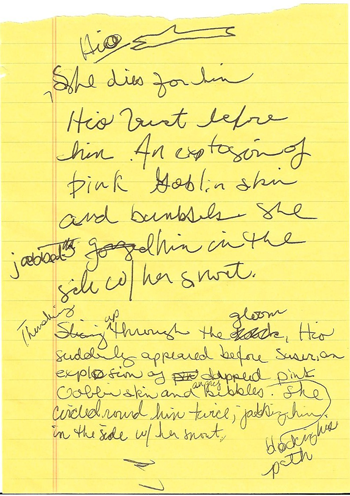 Hio
She dies for him
Hio Burst before
him. An explosion of
pink Goblin skin
and baubles. She
jabbed him in the
side w/ her snout.
up gloom
through the, Hio
suddenly appeared before Swan, an
explosion of pink
Goblin skin and baubles. She
circled round him twice, jabbing him
in the side w/ her snout,
blocking his
path